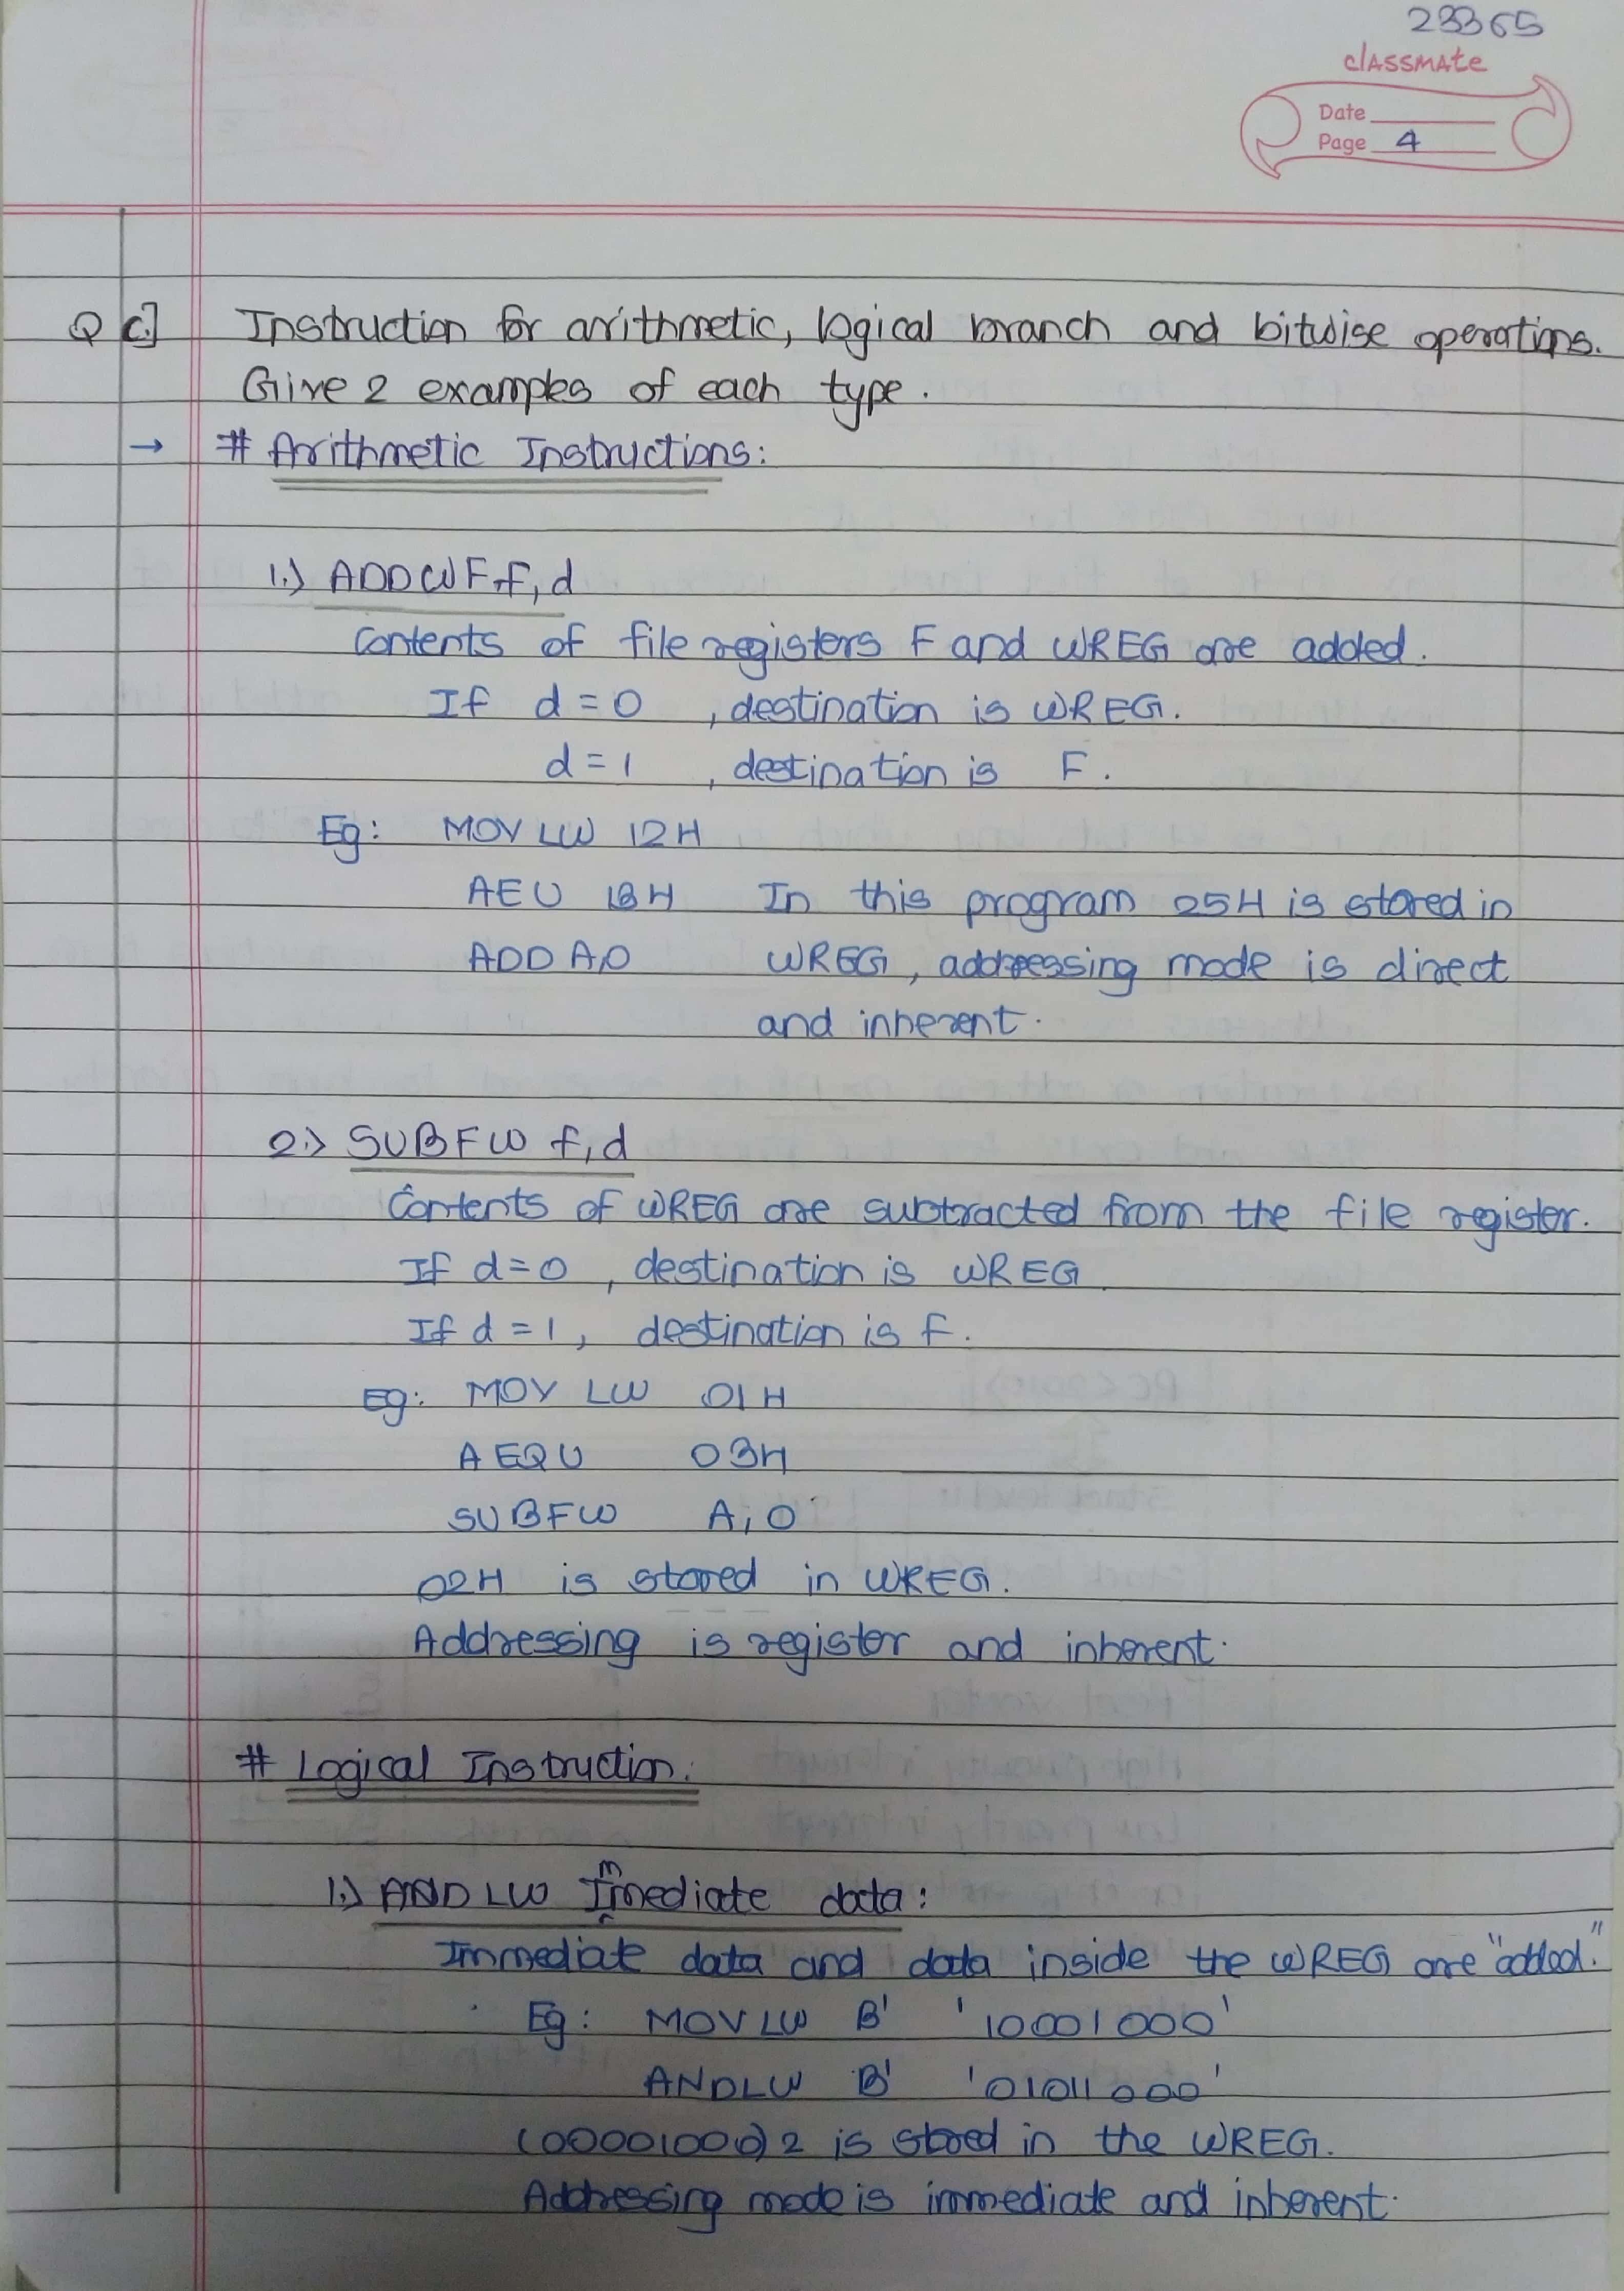 23365
classmate
Date
Page 4
Q c.] Instruction for arithmetic, logical branch and bitwise operations.
Give 2 examples of each type.
→ # Arithmetic Instructions:
1.) ADDWF f, d
Contents of file registers F and WREG are added.
If d = 0 , destination is WREG.
d = 1 , destination is F.
Eg: MOVLW 12H
AEU 13H In this program 25H is stored in
ADD A,0 WREG, addressing mode is direct
and inherent.
2.) SUBFW f, d
Contents of WREG are subtracted from the file register.
If d=0 , destination is WREG
If d = 1, destination is F.
Eg: MOV LW 01H
A EQU 03H
SUBFW A, 0
02H is stored in WREG.
Addressing is register and inherent.
# Logical Instruction:
1.) ANDLW Immediate data:
Immediate data and data inside the WREG are "added."
Eg: MOVLW B' '10001000'
ANDLW B' '01011000'
(00001000)2 is stored in the WREG.
Addressing mode is immediate and inherent.